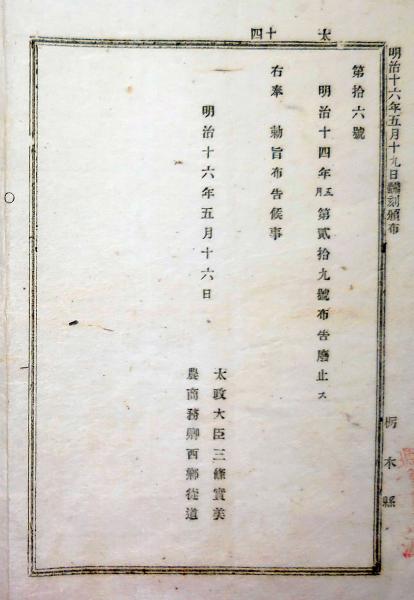 明治十六年五月十九日翻刻頒布
栃木縣
太 十四
第拾六號
明治十四年五月第貳拾九號布告廢止ス
右奉 勅旨布告候事
明治十六年五月十六日
太政大臣三條實美
農商務卿西鄕從道